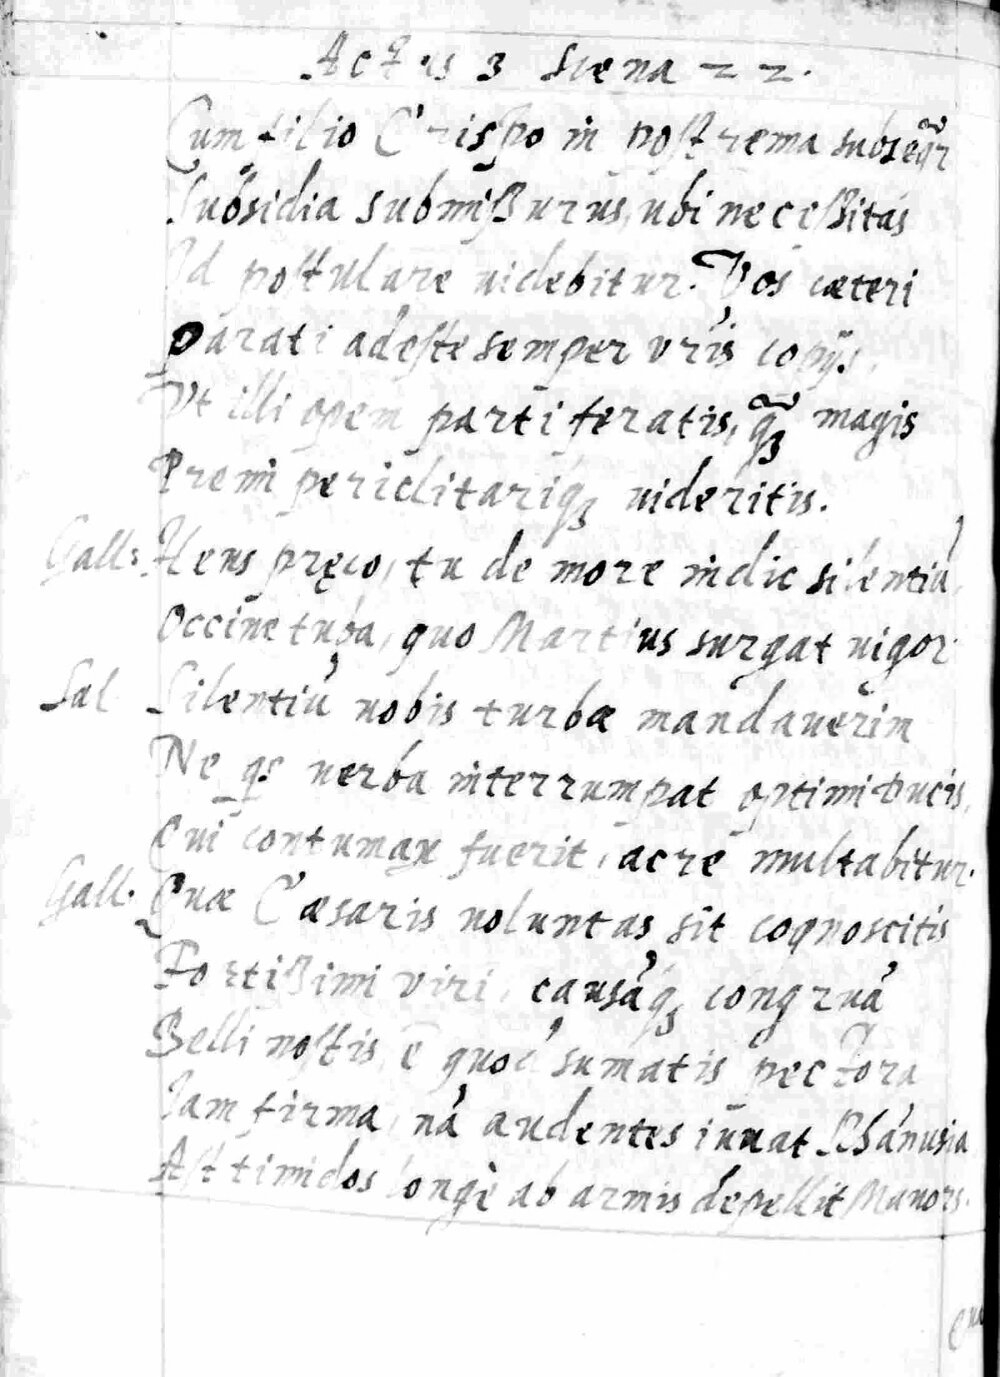 Actus 3 Scena 22.
Cum filio Crispo in postrema subseqr̃
Subsidia submißurus, ubi neceßitas
Id postulare uidebitur. Vos cæteri
Parati adeste semper vr̃is copijs,
Vt illi opem parti feratis, q̃ꝫ magis
Premi periclitariqꝫ uideritis.
Gall: Heus pręco, tu de more indic silentiũ,
Occine tuba, quo Martius surgat uigor.
Sal Silentiũ uobis turbæ mandauerim
Ne qs uerba interrumpat optimi Ducis,
Cui contumax fuerit, acre multabitur.
Gall. Quæ Cæsaris uoluntas sit cognoscitis
Fortißimi viri, causãqꝫ congruã
Belli nostis, e quo sumatis pectora
Iam firma, nã audentes iuuat Rhãnusia
Ast timidos longè ab armis depellit Mauors.